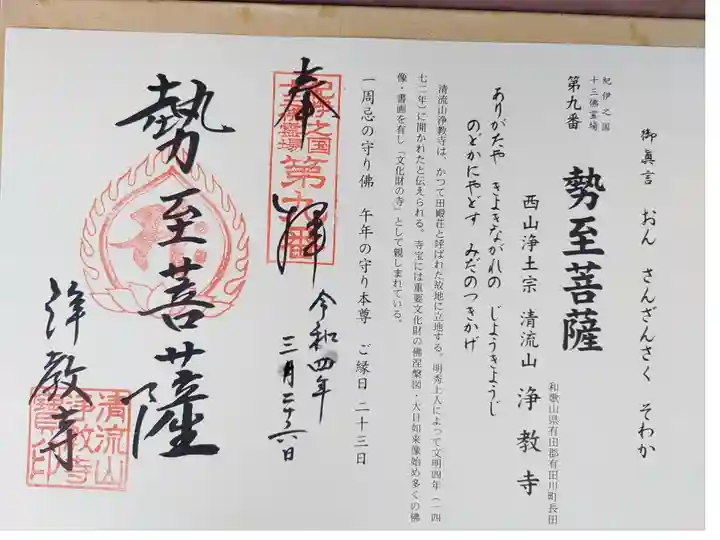 御眞言 おん さんざんさく そわか
紀伊之国
十三佛霊場
第九番 勢至菩薩
西山浄土宗 清流山 浄教寺
和歌山県有田郡有田川町長田
ありがたや きよきながれの じようきようじ
のどかにやどす みだのつきかげ
清流山浄教寺は、かつて田殿荘と呼ばれた故地に立地する。明秀上人によって文明四年(一四
七二年)に開かれたと伝えられる。寺宝には重要文化財の佛涅槃図・大日如来像始め多くの佛
像・書画を有し「文化財の寺」として親しまれている。
一周忌の守り佛 午年の守り本尊 ご縁日 二十三日
奉拝 令和四年
三月二十六日
紀伊之国
十三佛霊場
第九番
勢至菩薩
浄教寺
清流山
浄教寺
寶印